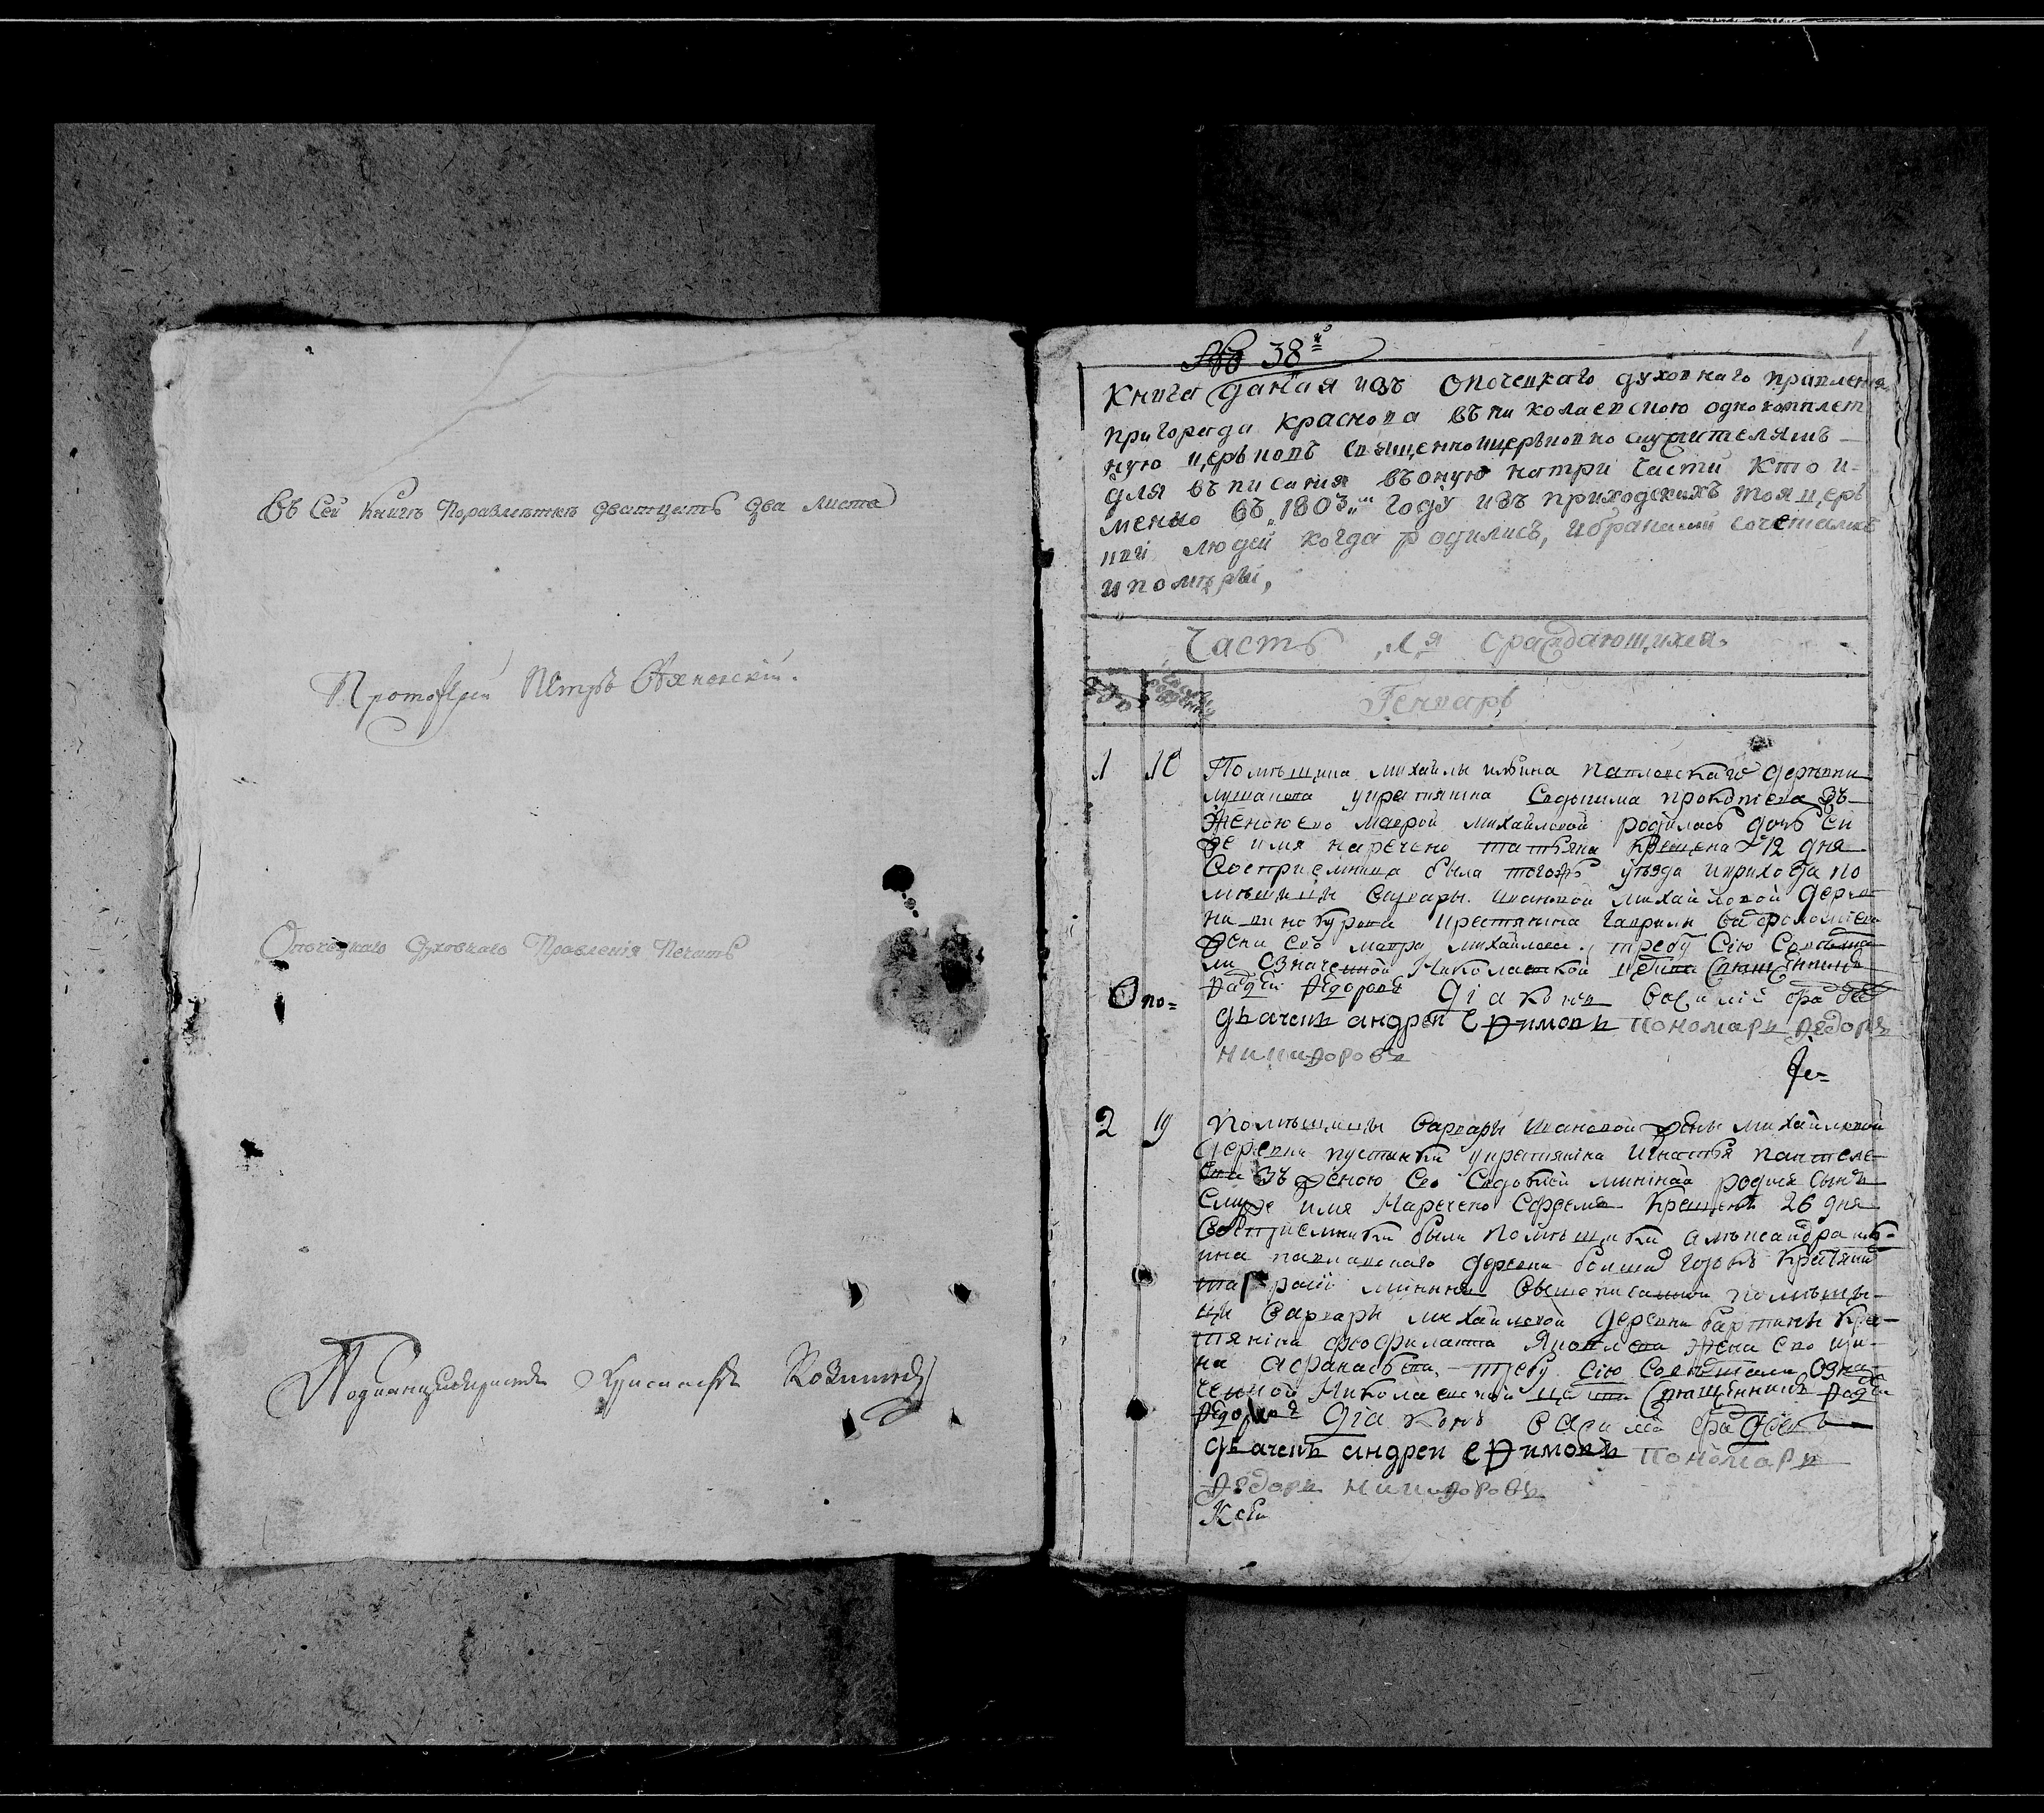 Въ Сей Книгѣ Нораблѣтки дватцать два листа
Протоіерей Петръ
Опочецкаго Духовнаго Правленія Печать
Подканцеляристъ
№ 38й
1
Книга данная изъ опочецкаго духовнаго правления
пригорода краснова въ николаевскою однокомплет
ную церьковь священноицерьковно служителямъ
для въписания въоную натри части кто и-
менно въ 1803м году изъ приходскихъ тоя церь
кви людей когда родились, ибракомъ сочетались
и померьли,
Часть 1я ораждающихся
Генварь
1 10 Помѣщика михайлы ильина павловскаго деревни
укрестянина Евдокима прокопиева зъ
Женою его маврой михайловой родилась дочь ей
же имя наречено татьяна крещена 12 дня
Восприемница была тогожъ уѣзда иприхода по
мѣщицы варвары ивановой михайловой дерев
ни крестянина гаврилы варфоломѣева
жена его мавра михайлова, требу Сію Совѣтша
ли означенной Николаевской цркви Священникъ
Фадѣй Федоровъ Діаконъ Василій фадѣевъ
Опо=
дьячекъ андреи ефимовъ пономарь федоръ
никифоровъ
Це-
2 19 Помѣщицы Варвары Ивановой жены михайловой
деревни пустынки укрестянина Игнатья пантеле-
ева зъ женою Его Евдокией мининой родися Сынъ
Емуже имя Наречено Ефремъ Крещенъ 26 дня
Восприемники были помѣщика александра иль-
ина павловскаго деревни Крстянин
минина Вышеписанной помѣщи-
цы Варвары михайловой деревни Кре-
стянина феофилакта Яковлева жена его ири-
на Афанасьева, - требу Сію Совѣтшали Озна-
ченной Николаевской цркви Священникъ Фадѣи
Федоровъ Діаконъ василій фадѣевъ
дьячекъ андреи ефимовъ пономарь
федоръ никифоровъ